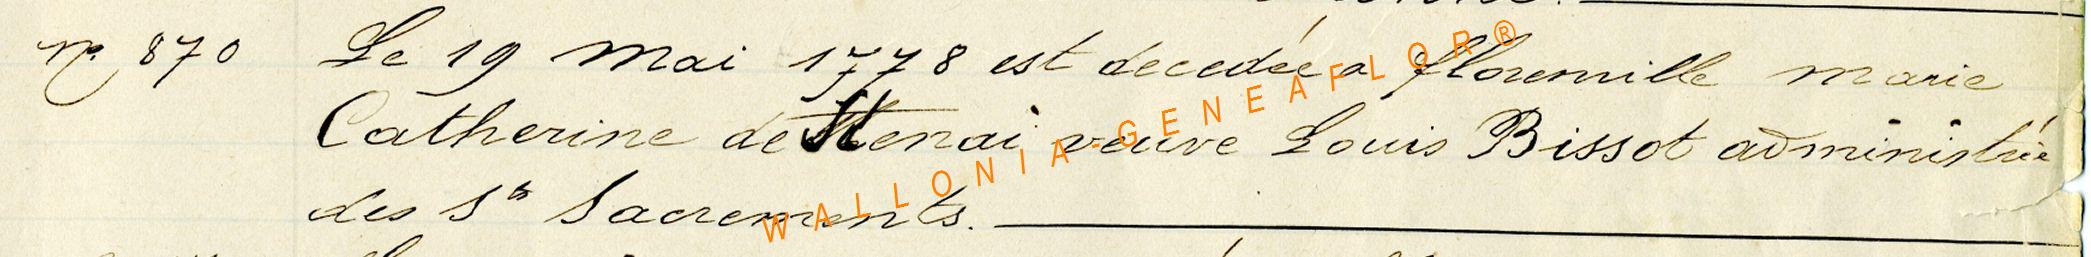 n°. 870 Le 19 Mai 1778 est decedée a florenville marie
Catherine de Stenai veuve Louis Bissot administrée
des Sts Sacrements.
WALLONIA-GENEAFLOR®